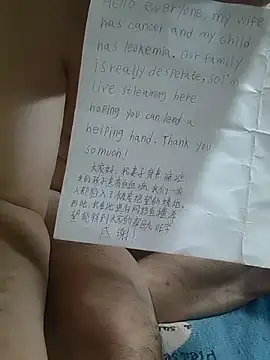 Hello everyone, my wife
has cancer and my child
has leukemia. Our family
is really desperate, so I'm
live streaming here
hoping you can lend a
helping hand. Thank you
so much!
大家好，我妻子身患癌症
我们一家
人都陷入了极度绝望的境地。
因此，我在此进行网络直播，希
望能得到大家的援助。非常
感谢
Please